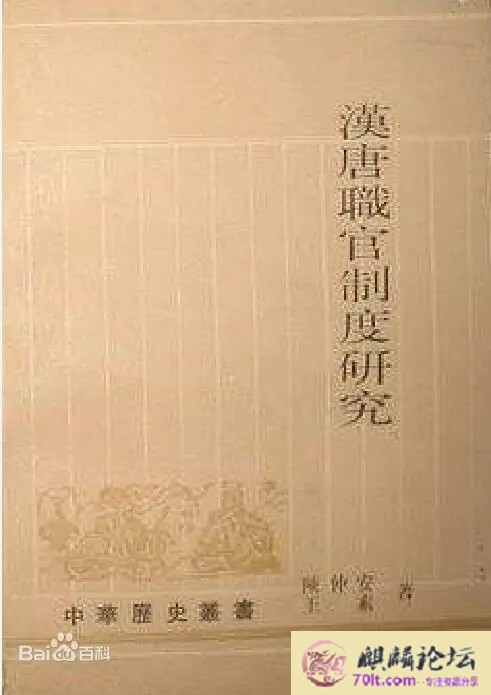 漢唐職官制度研究
陳仲安
王素
著
中華歷史叢書
Bai du 百科
麒麟论坛
70lt.com--专注资源分享